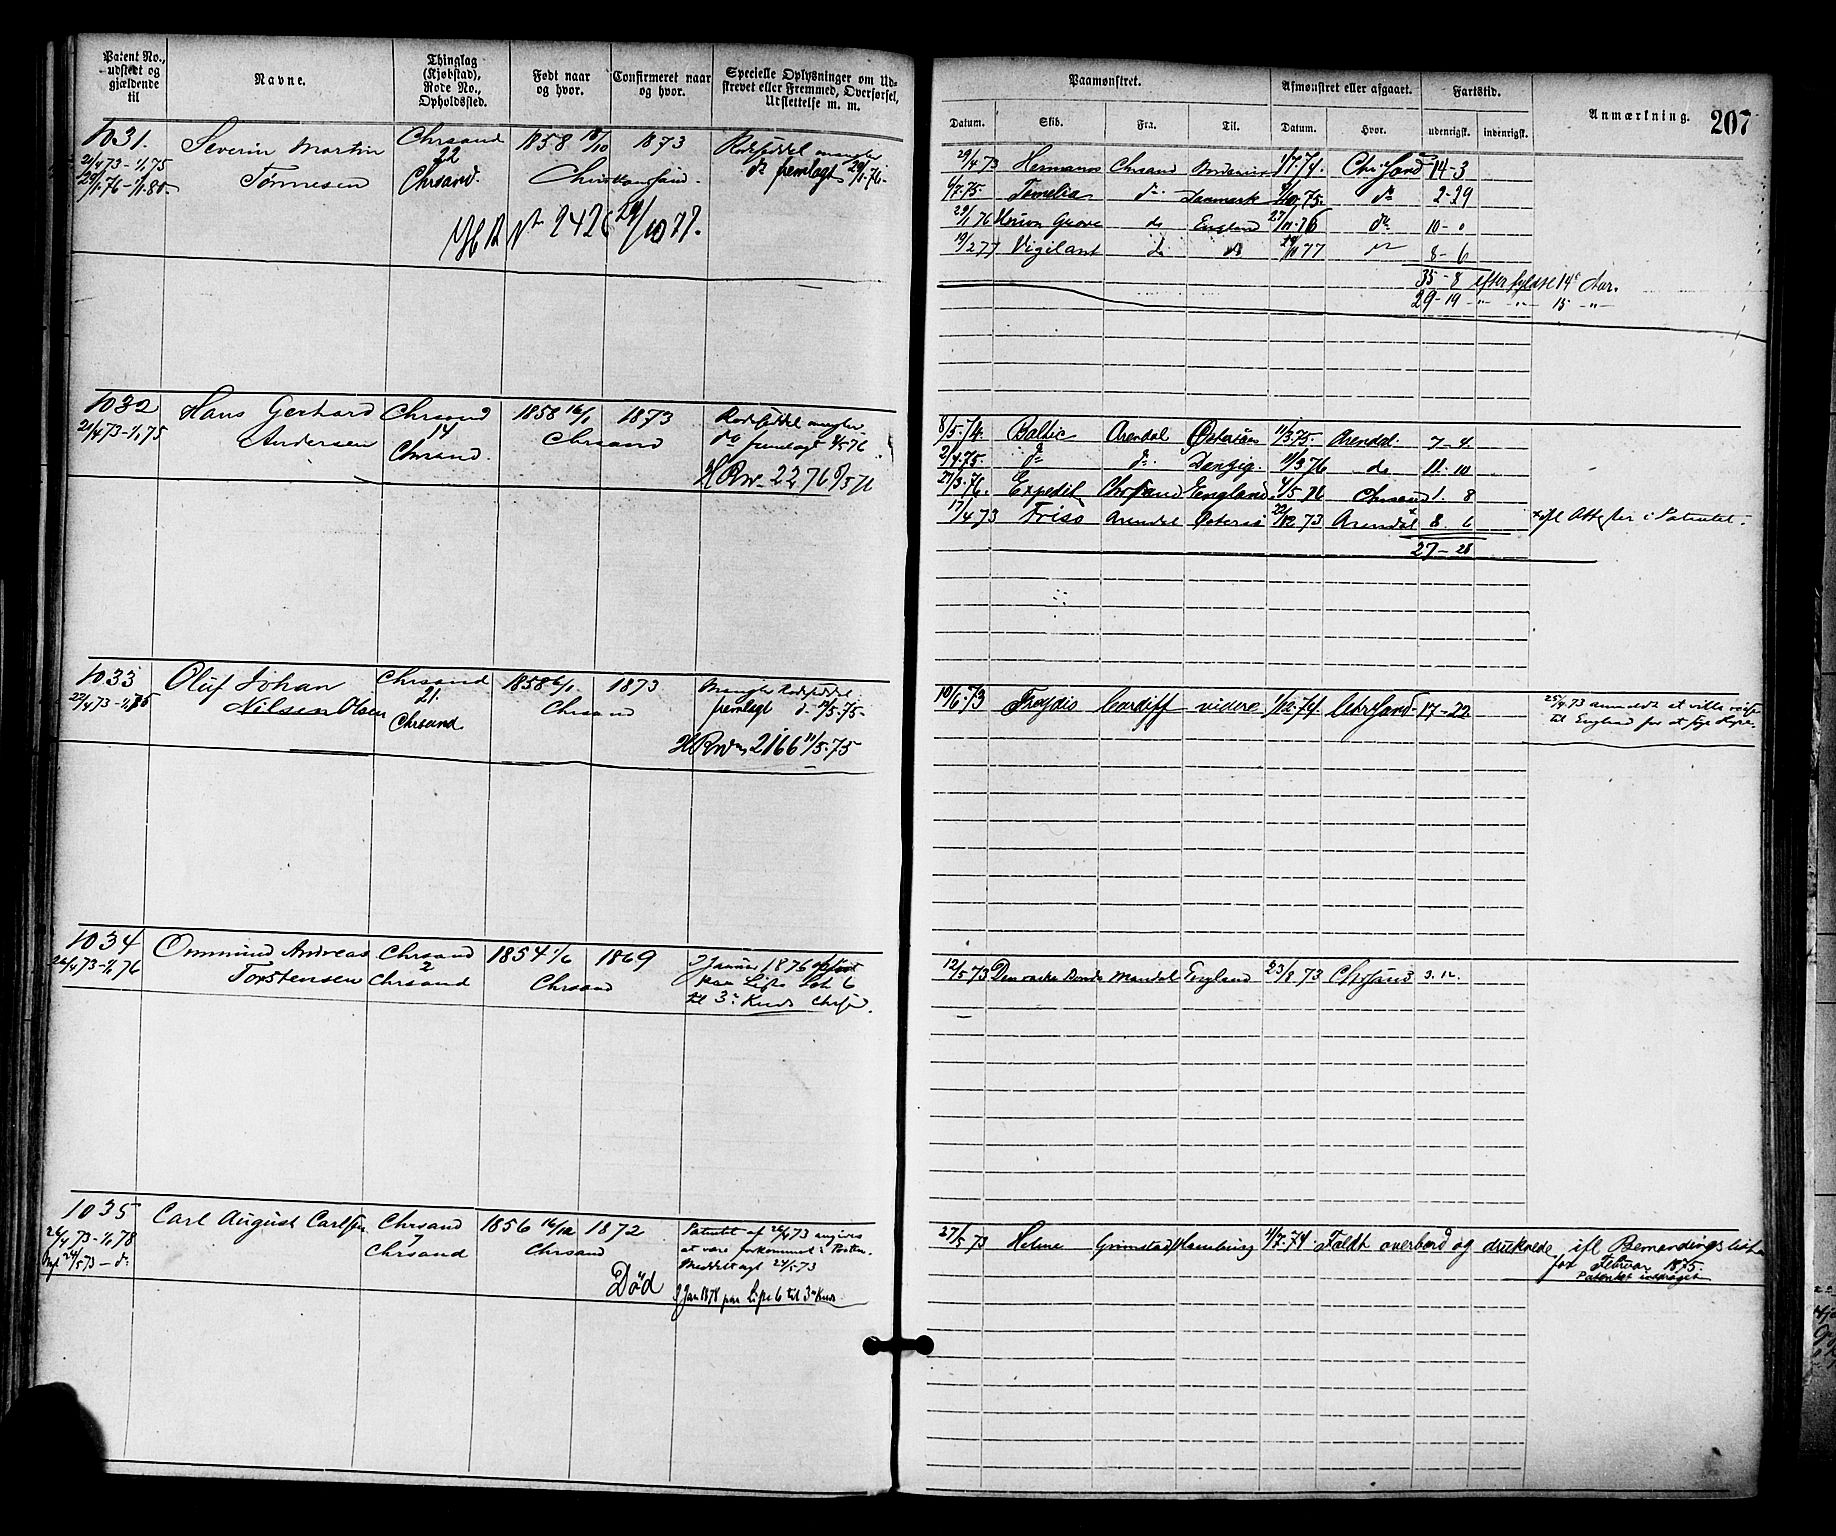 Patent No., udstedt og gjældende til
Navne.
Thinglag (Kjøbstad), Rode No., Opholdssted.
Født naar og hvor.
Confirmeret naar og hvor.
Specielle Oplysninger om Udstrevet eller Fremmed, Overførsel, Udslettelse m. m.
Paamønstret.
Afmønstret eller afgaaet.
Fartstid.
Anmærkning.
207
Datum.
Skib.
Fra.
Til.
Datum.
Hvor.
udenrigsk.
indenrigsk.
1031.
21/4 73 - 1/1 75
Severin Martin
Tønnesen
Chrsand
22
Chrsand.
1858 18/10
1873
Christiansand
mangler
do fremlagt
HR No 2426 29/10 77.
29/4 73 Hermanos Chrsand 1/7.74. Chrsand 14-3
Danmark 75. do 2-29
23/1 76 Union Grove do England 27/11 76 do 10-0
19/2 77 Vigilant do do 77 8-6
35-8 efter fyldte 14 Aar.
29-19 " " 15 "
1032
21/4 73 - 1/1 75
Hans Gerhard
Andersen
Chrsand
14
Chrsand.
1858 16/1
1873
Chrsand
mangler
do fremlagt
HR No 2276 8/5 76
8/5.74. Baltic Arendal Østersøen 11/3 75. Arendal 7-4
2/4.75. do do Danzig. 11/3 76 do 11-10
27/3.76. Expedit Chrsand England 4/5 76 Chrsand 1. 8
17/4 73 Friso Arendal Østersø 22/12 73 Arendal 8. 6 + ifl Attester i Patentet.
27-28
1033
22/4 73 - 1/1 75
Oluf Johan
Nilsen Olsen
Chrsand
21.
Chrsand
1858 6/1
1873
Chrsand
Mangler
fremlagt 11/5-75-
HR No 2166 11/5-75
10/6.73 Frøjdis Cardiff videre 1/12.74 Chrsand 17-22
25/4 73 anmeldt at ville reise
til England for at søge Hyre.
1034
26/4 73 - 1/1 76
Ommund Andreas
Torstensen
Chrsand
2
Chrsand
1854 1/6
1869
Chrsand
Januar 1876 opført
paa Liste 6
til 3. Kreds
12/5 73 Den norske Bonde Mandal England 23/8 73 Chrsand 3.12.
1035
26/4 73 - 1/1 78
Nyt 24/5 73 - do
Carl August Carlsen
Chrsand
7
Chrsand
1856 16/12
1872
Chrsand
Død
Patentet af 26/4 73 angives
at være forkommet i Posten.
Meddelt nyt 24/5 73
Jan 1878 paa Liste 6 til 3 Kreds
27/5 73 Helene Grimstad Hamburg 1/7.74 Faldt overbord og druknede ifl Bemandingsliste
for Februar 1875.
Patentet